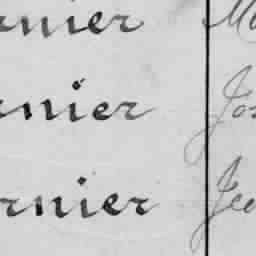 rnier Ma
rnier Jos
rnier Jea